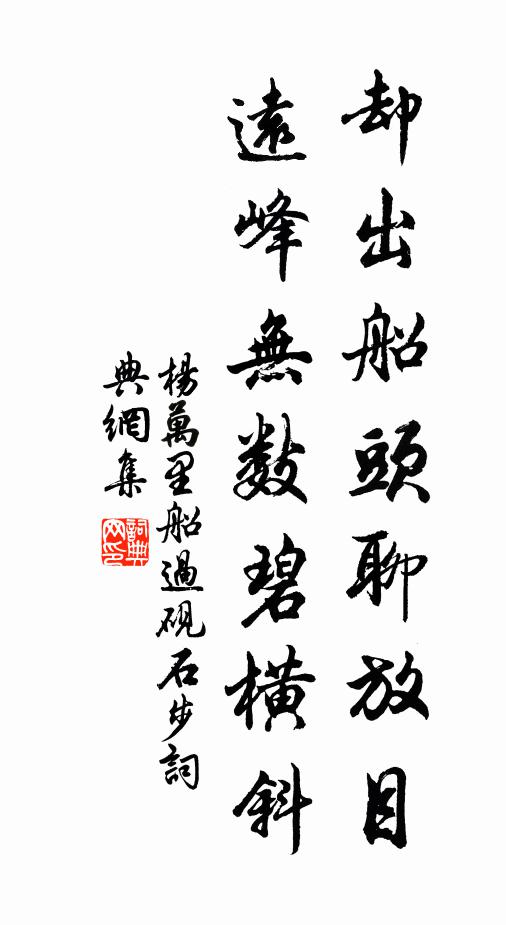 却出船頭聊放目
遠峰無数碧横斜
楊萬里船過硯石步詞
典網集
詞典
网印